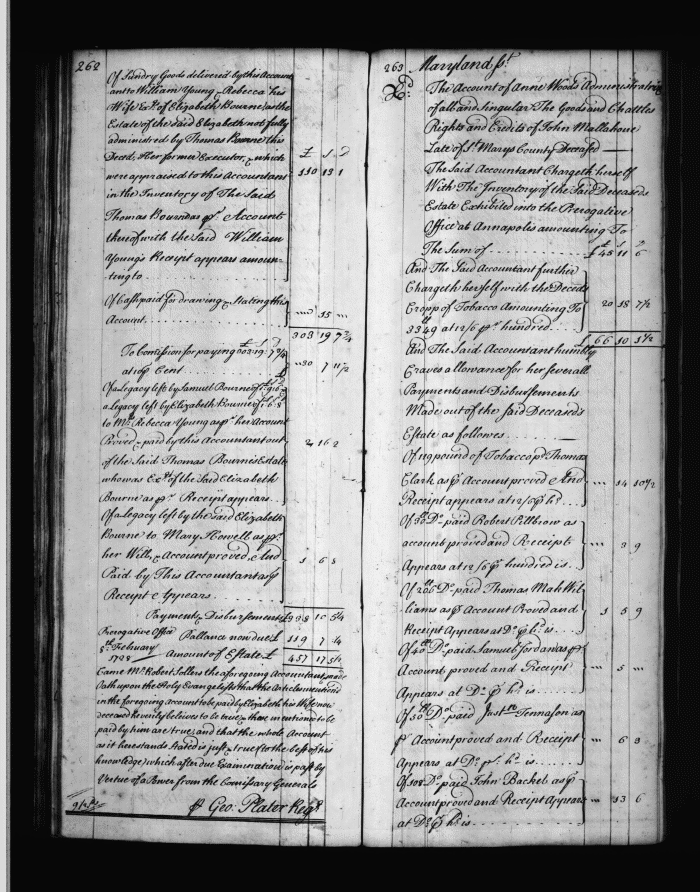 262
Of Sundry Goods delivered by this Account
ant to William Young & Rebecca his
Wife Exr. of Elizabeth Bourne as the
Estate of the said Elizabeth not fully
administred by Thomas Bourne this
Deced. Her former Executor, & which £ S D
were appraised to this Accountant 110 13 1
in the Inventory of The Said
Thomas Bourn as pr. Account
thereof with the Said William
Young's Receipt appears amoun-
ting to
Of Cash paid for drawing & Stating this
Account 15
303 19 7 3/4
To Comission for paying 303:19:7 3/4
at 10 p Cent 30 7 11 1/2
Of a Legacy left by Samuel Bourne of
a Legacy left by Elizabeth Bourne of
to Mrs. Rebecca Young as pr. her Account
Proved & paid by this Accountant out 2 16 2
of the Said Thomas Bourn's Estate
who was Exr. of the Said Elizabeth
Bourne as pr. Receipt appears
Of a Legacy left by the said Elizabeth
Bourne to Mary Howell as pr.
her Will, & Account proved, And 1 6 8
Paid by This Accountant as p
Receipt Appears
Payments & Disbursements £338 10 5 1/4
Prerogative Office Ballance now due £ 119 7 1/4
8th. February
1728 Amount of Estate £ 457 17 5 1/2
Came Mr. Robert Sollers the aforegoing Accountant & made
Oath upon the Holy Evangelists that the Articles mention'd
in the foregoing Account to be paid by Elizabeth his Wife now
deceased he verily believes to be true & those mentioned to be
paid by him are true, and that the whole Account
as it here stands Stated is just & true (to the best of his
knowledge) which after due Examination is past by
Vertue of a Power from the Comissary Generall
p Geo: Plater Regr.
263 Maryland ss.
The Account of Anne Woods Administratrix
of all and Singular The Goods and Chattles
Rights and Credits of John Mallahone
Late of St. Marys County Deceased
The Said Accountant Chargeth herself
With The Inventory of the Said Deceaseds
Estate Exhibited into the Prerogative
Office at Annapolis amounting To
The Sum of £45 11 6
And The Said Accountant further
Chargeth herself with the Deceds
Cropp of Tobacco Amounting To 20 18 7 1/2
3349 at 12/6 pr. hundred
£66 10 1 1/2
And The Said Accountant humbly
Craves allowance for her severall
Payments and Disbursements
Made out of the Said Deceased's
Estate as followes
Of 119 pound of Tobacco pd. Thomas
Clark as p Account proved And 14 10 1/2
Receipt appears at 12/6 p hd.
Of 30 Do. paid Robert Pillbrow as
account proved and Receipt 3 9
Appears at 12/6 p hundred is
Of 206 Do. paid Thomas Mak Wil
liams as p Account Proved and 1 5 9
Receipt Appears at Do. p hd. is
Of 40 Do. paid Samuel Jordan as p
Account proved and Receipt 5
Appears at Do. p hd. is
Of 50 Do. paid Tennason as
p Account proved and Receipt 6 3
Appears at Do. pr. hd. is
Of 108 Do. paid John Backeb as p
Account proved and Receipt Appears 13 6
at Do. p hd. is